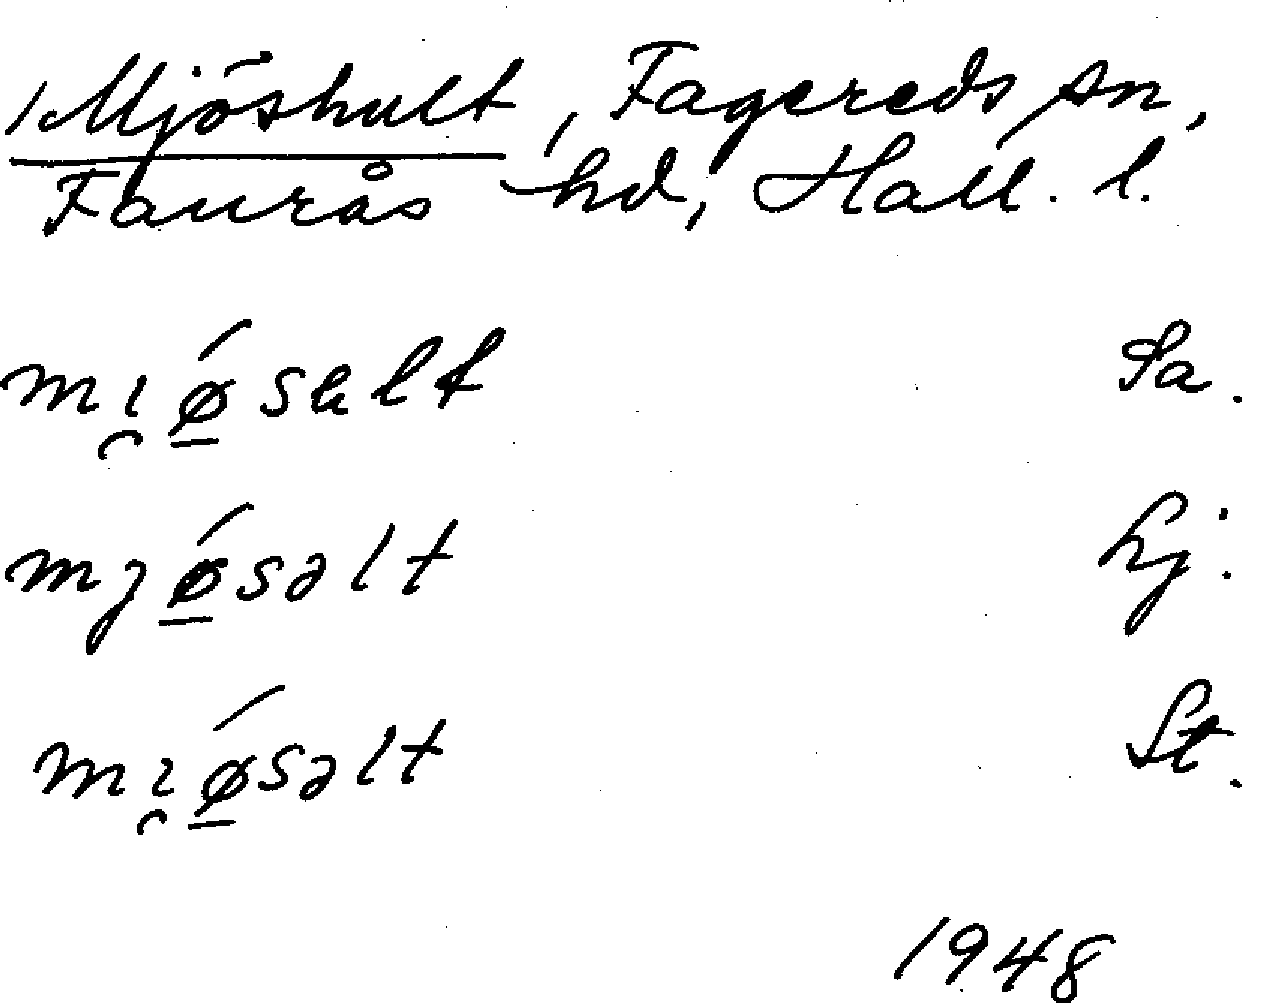 /Mjöshult, Fagereds sn,
Faurås hd, Hall. l.
mı̯ǿ̲salt Sa.
mȷǿ̲səlt Hj.
mı̯ǿ̲səlt St.
1948